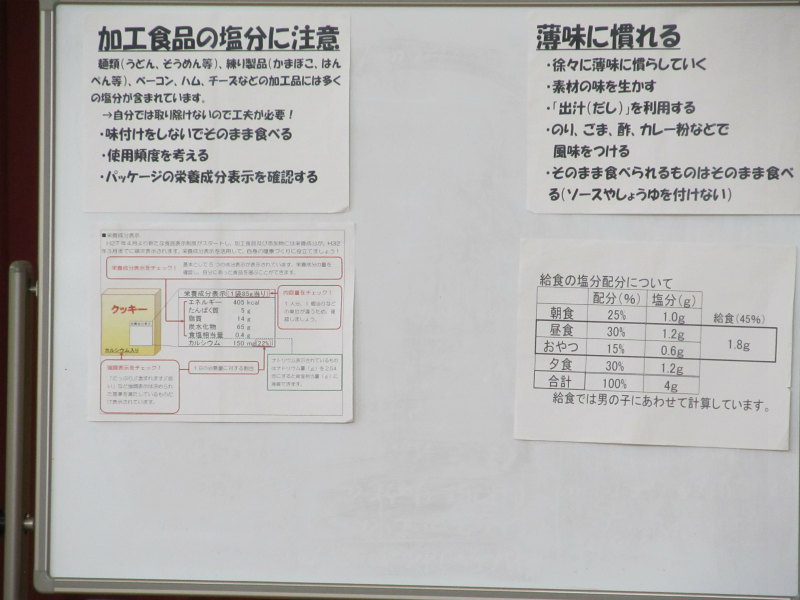 加工食品の塩分に注意
麺類(うどん、そうめん等)、練り製品(かまぼこ、はん
ぺん等)、ベーコン、ハム、チーズなどの加工品には多く
の塩分が含まれています。
→自分では取り除けないので工夫が必要!
・味付けをしないでそのまま食べる
・使用頻度を考える
・パッケージの栄養成分表示を確認する
薄味に慣れる
・徐々に薄味に慣らしていく
・素材の味を生かす
・「出汁(だし)」を利用する
・のり、ごま、酢、カレー粉などで
風味をつける
・そのまま食べられるものはそのまま食べ
る(ソースやしょうゆを付けない)
■栄養成分表示
栄養成分表示をチェック!
クッキー
カルシウム入り
栄養成分表示(1袋85g当り)
エネルギー 405 kcal
たんぱく質 5 g
脂質 14 g
炭水化物 65 g
食塩相当量 0.4 g
カルシウム 150 mg(22%)
内容量をチェック!
強調表示をチェック!
給食の塩分配分について
配分(%) 塩分(g)
朝食 25% 1.0g 給食(45%)
昼食 30% 1.2g 1.8g
おやつ 15% 0.6g
夕食 30% 1.2g
合計 100% 4g
給食では男の子にあわせて計算しています。